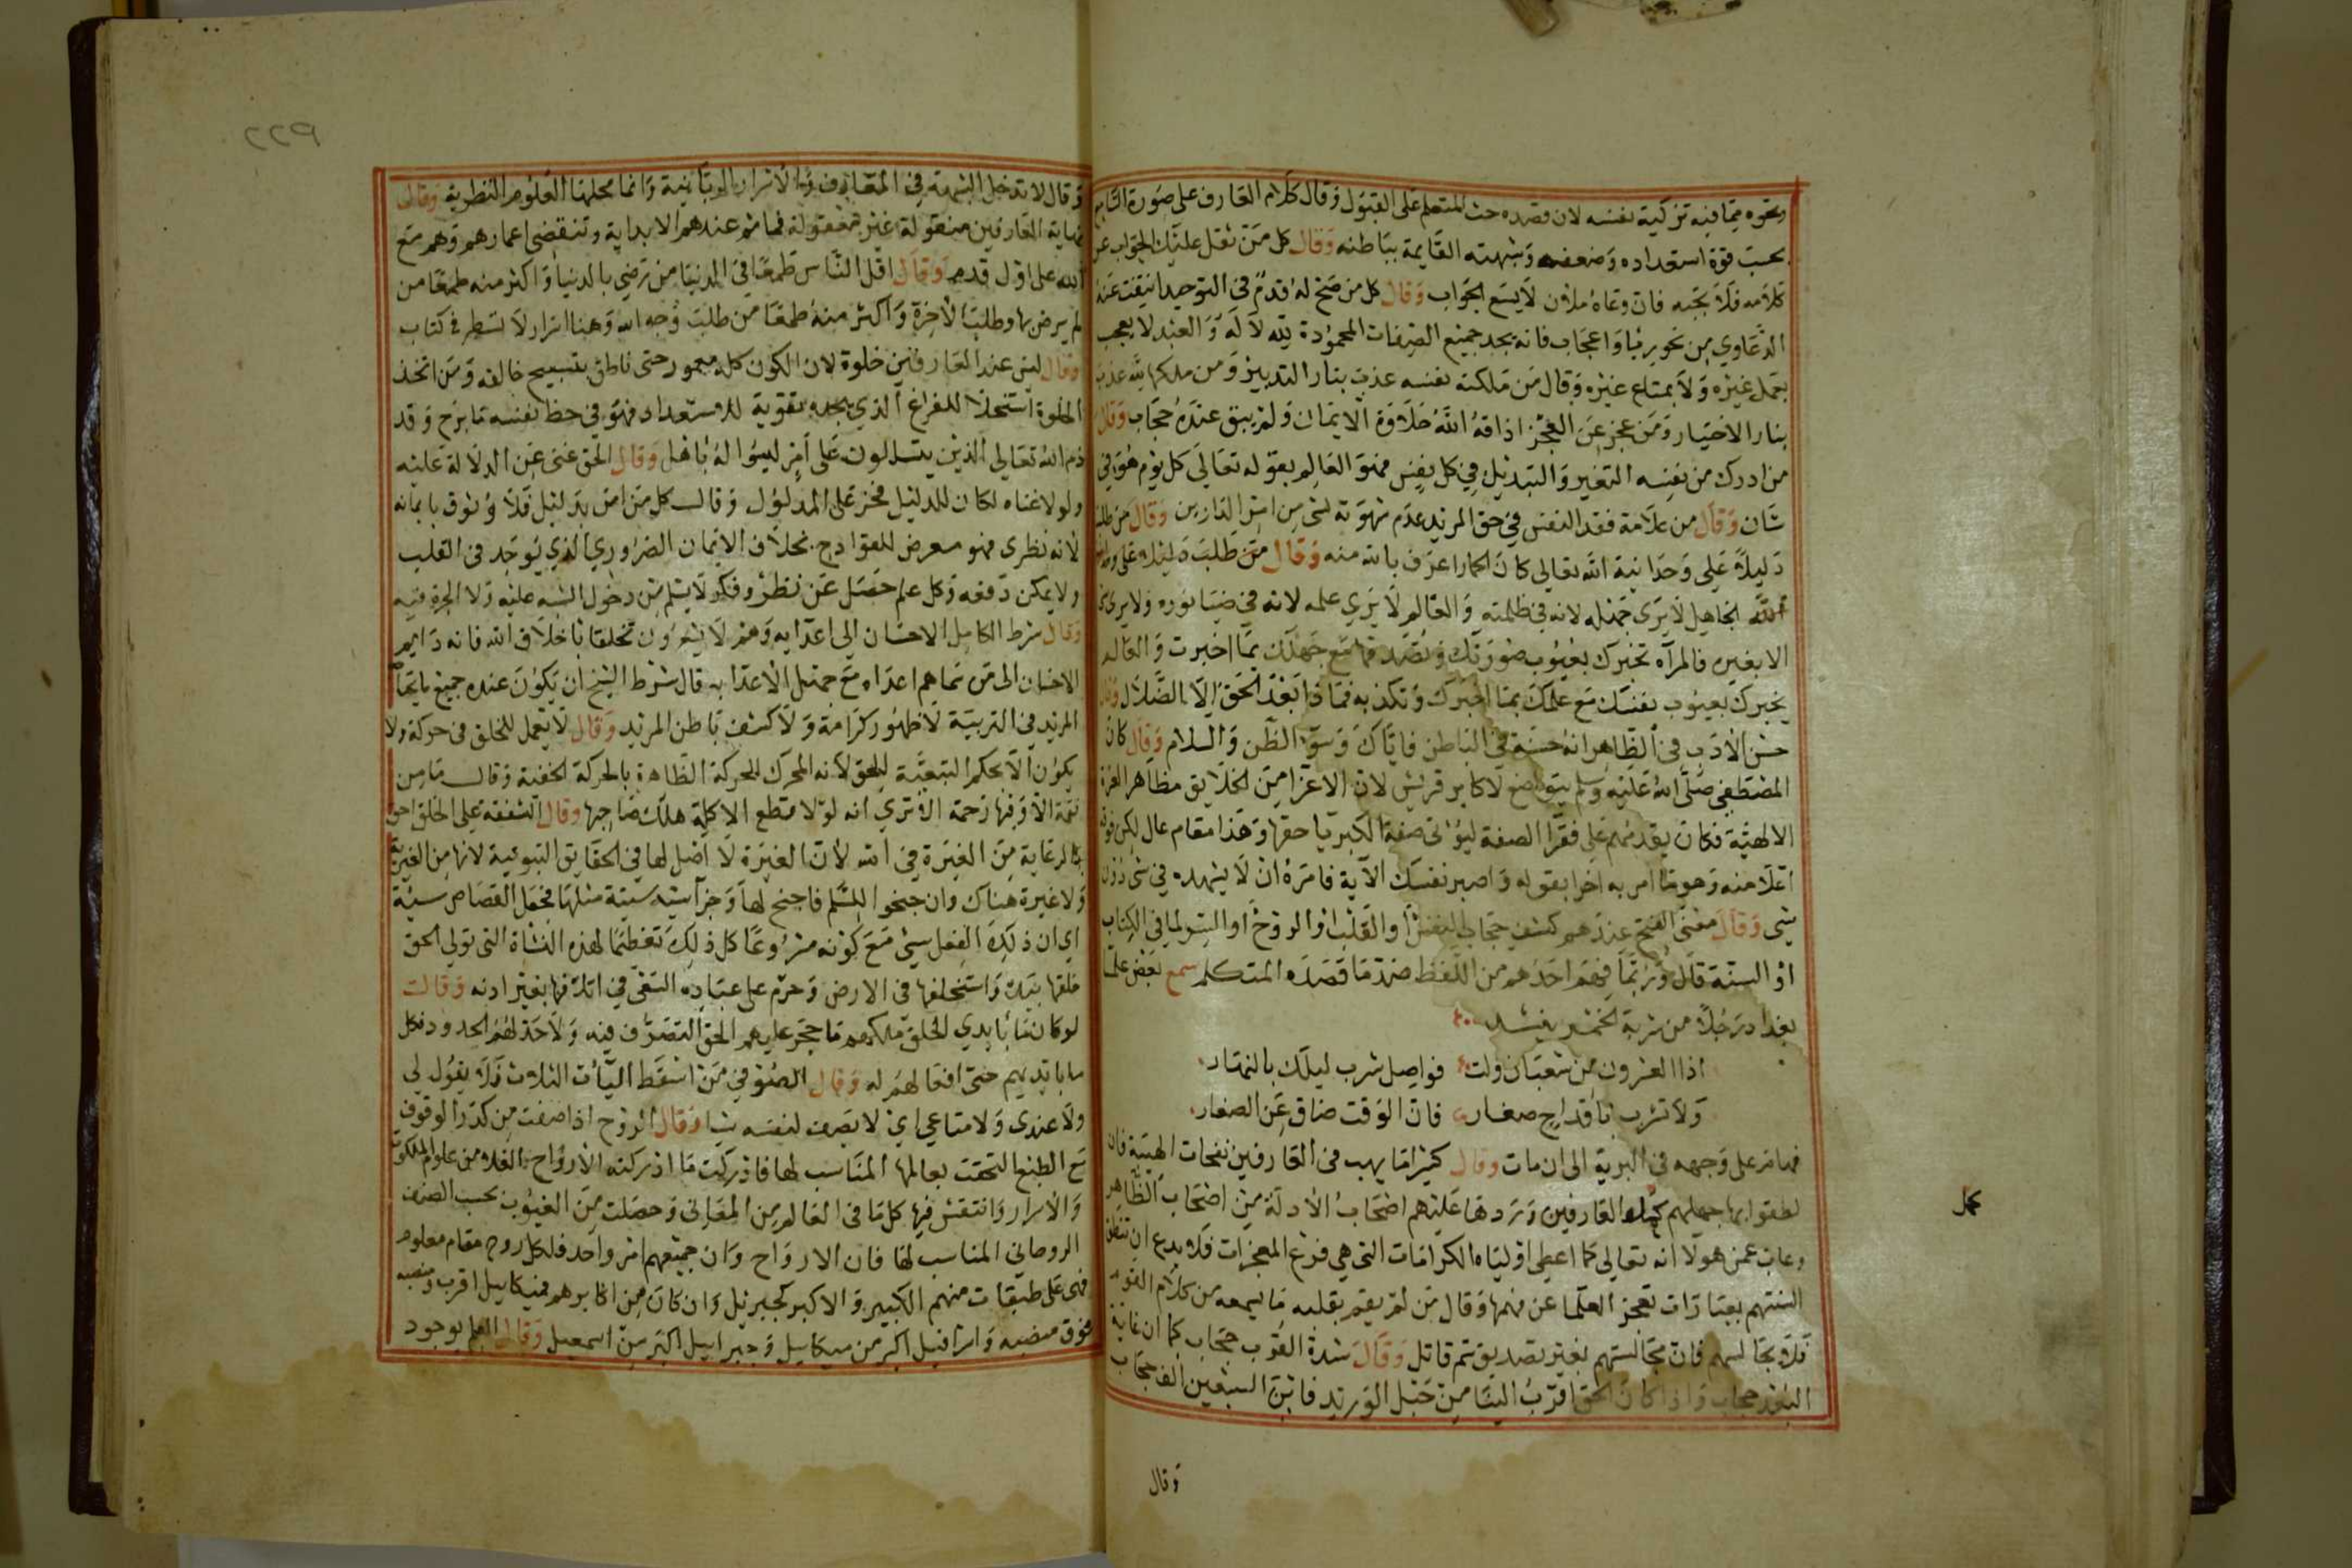 ونحوه مما فيه تزكية نفسه لان قصده حث المتعلم على القبول وقال كلام العارف على صورة السامع
بحسب قوة استعداده وضعفه وشبهته القايمة بباطنه وقال كل من ثقل عليك الجواب عن
كلامه فلا تجبه فان وعاه ملآن لا يسع الجواب وقال كل من صح له قدم في التوحيد انتفت عنه
الدعاوي من نحو ريا واعجاب فانه يجد جميع الصفات المحمودة لله لا له والعبد لا يعجب
بعمل غيره ولا بمتاع غيره وقال من ملكته نفسه عذب بنار التدبير ومن ملكها لله عذب
بنار الاختيار ومن عجز عن العجز اذاقه الله حلاوة الايمان ولم يبق عنده حجاب وقال
من ادرك من نفسه التغير والتبديل في كل نفس فهو العالم بقوله تعالى كل يوم هو في
شان وقال من علامة فقد النفس في حق المريد عدم شهوته لشي من امر الدارين وقال من طلب
دليلا على وحدانية الله تعالى كان الحمار اعرف بالله منه وقال من طلب دليلا على وحدانية
الله الجاهل لا يرى جهله لانه في ظلمته والعالم لا يرى علمه لانه في ضيا نوره ولا يرى شي
الا بغيره فالمرآه تخبرك بعيوب صورتك وتصدقها مع جهلك بما اخبرت والعالم
يخبرك بعيوب نفسك مع علمك بما اخبرك وتكذبه فماذا بعد الحق الا الضلال وقال
حسن الادب في الظاهر انه حسنه في الباطن فاياك وسوء الظن والسلام وقال كان
المصطفى صلى الله عليه وسلم يتواضع لاكابر قريش لان الاعزا من الخلايق مظاهر العزة
الالهية فكان يقدمهم على فقرا الصفة ليوفي صفة الكبريا حقها وهذا مقام عال لكن فوقه
اعلا منه وهو ما امر به اخرا بقوله واصبر نفسك الآية فامره ان لا يشهده في شي دون
شي وقال معنى الفتح عندهم كشف حجاب النفس او القلب او الروح او السر لما في الكتاب
او السنة قال وربما فهم احدهم من اللفظ ضد ما قصده المتكلم سمع بعض علما
بغداد رجلا من شربة الخمر ينشد
اذا العشرون من شعبان ولت فواصل شرب ليلك بالنهار
ولا تشرب باقداح صغار فان الوقت ضاق عن الصغار
فهام على وجهه في البرية الى ان مات وقال كثيرا ما يهب في العارفين نفحات الهية فان
نطقوا بها جهلهم كمل العارفين وردها عليهم اصحاب الادلة من اصحاب الظاهر
وغاب عن هولا انه تعالى كما اعطى اولياه الكرامات التي هي فرع المعجزات فلا بدع ان تنطق
السنتهم بعبارات تعجز العلما عن فهمها وقال من لم يقم بقلبه ما يسمعه من كلام القوم
فلا يجالسهم فان مجالستهم بغير تصديق سم قاتل وقال شدة القرب حجاب كما ان غاية
البعد حجاب واذا كان الحق اقرب الينا من حبل الوريد فاين السبعين الف حجاب
وقال
كمل
٢٢٩
وقال لا تدخل الشبهة في المعارف والاسرار الربانية وانما محلها العلوم النظرية وقال
نهاية العارفين منقولة غير معقولة فما ثم عندهم الا بداية وتنقضي اعمارهم وهم مع
الله على اول قدم وقال اقل الناس طمعا في الدنيا من رضي بالدنيا واكثر منه طمعا من
لم يرض بها وطلب الآخرة واكثر منه طمعا من طلب وجه الله وهنا اسرار لا تسطر في كتاب
وقال ليس عند العارفين خلوة لان الكون كله معمور حتى ناطق بتسبيح خالقه ومن اتخذ
الخلوة استخلا للفراغ الذي يجده بتقوية للاستعداد فهو في حظ نفسه ما برح وقد
ذم الله تعالى الذين يتسللون على امر ليسوا له باهل وقال الحق غني عن الدلالة عليه
ولولا غناه لكان للدليل فخر على المدلول وقال كل من امن بدليل فلا وثوق بايمانه
لانه نظرى فهو معرض للقوادح بخلاف الايمان الضروري الذي يوجد في القلب
ولا يمكن دفعه وكل علم حصل عن نظر وفكر لا يسلم من دخول الشبه عليه ولا الحيرة فيه
وقال شرط الكامل الاحسان الى اعدايه وهم لا يشعرون تخلقا باخلاق الله فانه دايم
الاحسان الى من سماهم اعداه مع جهل الاعدا به قال شرط الشيخ ان يكون عنده جميع ما يحتاج
المريد في التربية لا ظهور كرامة ولا كشف باطن المريد وقال لا تعمل للخلق في حركة ولا
يكون الا بحكم التبعية للحق لانه المحرك للحركة الظاهرة بالحركة الخفية وقال ما من
نقمة الا وفيها رحمة الا ترى انه لولا قطع الاكلة هلك صاحبها وقال الشفقة على الخلق احق
بالرعاية من الغيرة في الله لان الغيرة لا اصل لها في الحقايق الثبوتية لانها من الغيرية
ولا غيرة هناك وان جنحوا للسلم فاجنح لها وجزآ سيئة سيئة مثلها فجعل القصاص سيئة
اي ان ذلك الفعل سيئ مع كونه مشروعا كل ذلك تعظيما لهذه النشاة التي تولى الحق
خلقها بيده واستخلفها في الارض وحرم على عباده السعي في اتلافها بغير اذنه وقال
لو كان ما بايدي الخلق ملكهم ما حجر عليهم الحق التصرف فيه ولا حد لهم الحدود فكل
ما بايديهم حتى افعالهم له وقال الصوفي من اسقط الياآت الثلاث فلا يقول لي
ولا عندي ولا متاعي اي لا يضيف لنفسه شيا وقال الروح اذا صفت من كدر الوقوف
مع الطبع التحقت بعالمها المناسب لها فادركت ما ادركته الارواح العلا من علوم الملكوت
والاسرار وانتقش فيها كل ما في العالم من المعاني وحصلت من الغيوب بحسب الصنف
الروحاني المناسب لها فان الارواح وان جمعهم امر واحد فلكل روح مقام معلوم
فهي على طبقات منهم الكبير والاكبر كجبريل وان كان من اكابرهم فميكاييل اقرب ومنصبه
فوق منصبه واسرافيل اكبر من ميكاييل وجبراييل اكبر من اسمعيل وقال العلم بوجود